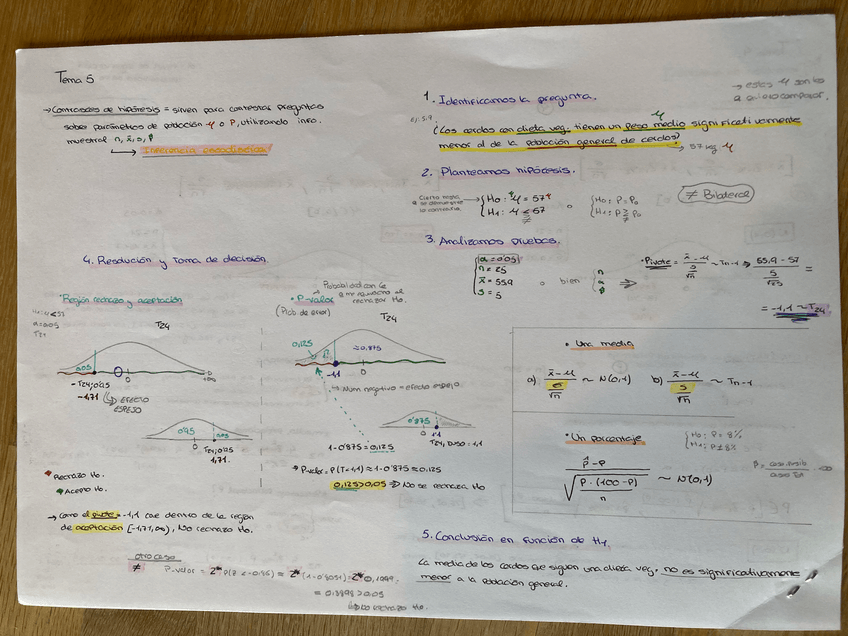 Tema 5
→ Contrastes de hipótesis = sirven para contestar preguntas
sobre parámetros de población μ o P, utilizando info.
muestral n, x̄, s, p̂
↳ Inferencia estadística
1. Identificamos la pregunta.
→ estas μ son las
a comparar.
ej: 5.9
μ
¿Los cerdos con dieta veg. tienen un peso medio significativamente
menor al de la población general de cerdos?
→ 57 kg μ
2. Planteamos hipótesis.
{ H0: μ = 57
{ H1: μ < 57
≠
o
{ H0: P = P0
{ H1: P ≷ P0
≠ Bilateral
3. Analizamos pruebas.
{ α = 0'05
n = 25
x̄ = 55,9
s = 5
o bien
{ n
α
p̂
⇒
• Pivote = (x̄ - μ) / (s/√n) ~ Tn-1 → (55,9 - 57) / (5/√25) =
= -1,1 ~ T24
• Una media
a) (x̄ - μ) / (σ/√n) ~ N(0,1) b) (x̄ - μ) / (s/√n) ~ Tn-1
• Un porcentaje
{ H0: P = 8%
{ H1: P ≠ 8%
(p̂ - P) / √(P·(100-P)/n) ~ N(0,1)
4. Resolución y Toma de decisión.
• Región rechazo y aceptación
H1: μ < 57
α = 0'05
T24
T24
0,05
0
+∞
-T24;0'05
-1,71
EFECTO
ESPEJO
0'95
0,05
0
T24;0'05
1,71.
• Rechazo H0.
• Acepto H0.
→ Como el pivote = -1,1 cae dentro de la región
de aceptación [-1,71,∞), No rechazo H0.
• P-valor
(Prob. de error)
Probabilidad con la
que me equivoco al
rechazar H0.
T24
0,125
≈0,875
-1,1
0
→ Num negativo = efecto espejo
0'875
0
1'1
1-0'875=0,125
• Pvalor = P(T<-1,1) ≈ 1-0'875 ≈ 0,125
0,125>0,05 ⇒ No se rechaza H0
otro caso
≠
0,05
No rechazo H0.
5. Conclusión en función de H1.
La media de los cerdos que siguen una dieta veg. no es significativamente
menor a la población general.